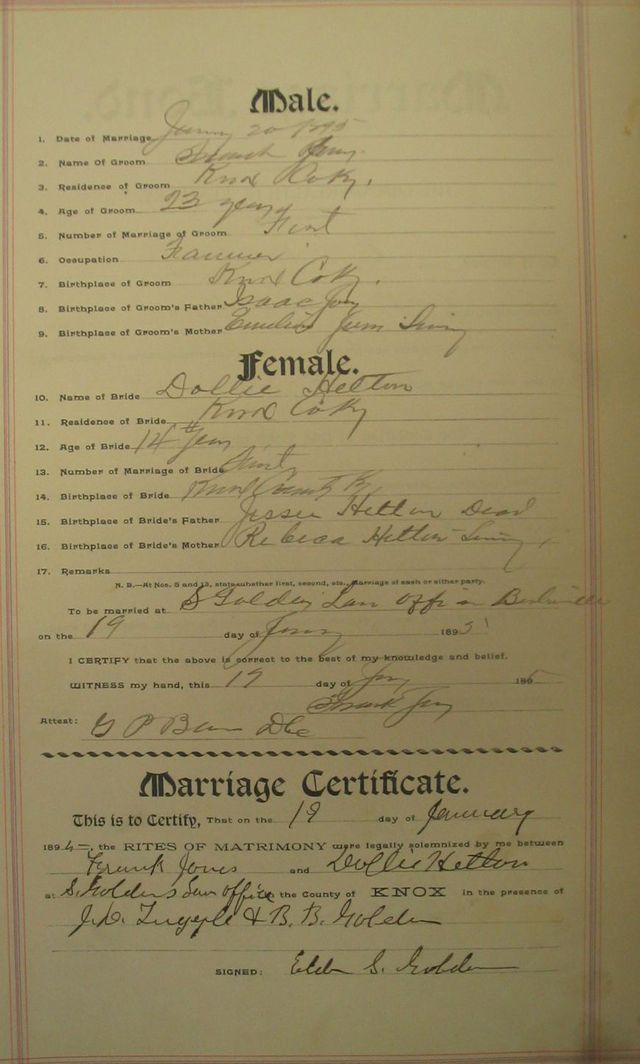 Male.
1. Date of Marriage 20 1895
2. Name Of Groom Frank
3. Residence of Groom Knox Co Ky.
4. Age of Groom 23 years
5. Number of Marriage of Groom First
6. Occupation Farmer
7. Birthplace of Groom Knox Co Ky.
8. Birthplace of Groom's Father Isaac
9. Birthplace of Groom's Mother Living
Female.
10. Name of Bride Dollie Helton
11. Residence of Bride Knox Co Ky
12. Age of Bride 14 Years
13. Number of Marriage of Bride First
14. Birthplace of Bride Knox County Ky
15. Birthplace of Bride's Father Jessee Helton Dead
16. Birthplace of Bride's Mother Rebecca Helton Living
17. Remarks
N. B.—At Nos. 5 and 13, state whether first, second, etc., marriage of each or either party.
To be married at S Golden's Law office
on the 19 day of 1895
I CERTIFY that the above is correct to the best of my knowledge and belief.
WITNESS my hand, this 19 day of 185
Frank
Attest: G P
Marriage Certificate.
This is to Certify, That on the 19 day of January
189 , the RITES OF MATRIMONY were legally solemnized by me between
Frank Jones and Dollie Helton
at S. Golden's Law office the County of KNOX in the presence of
J. D. & B. B. Golden
SIGNED: S. Golden